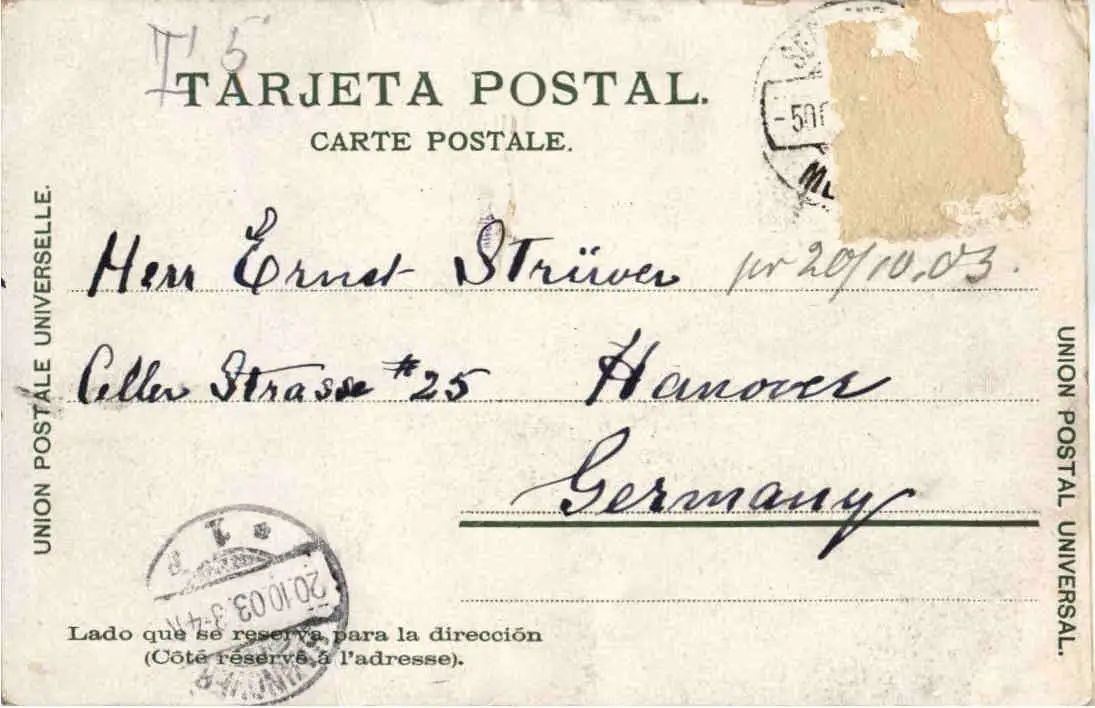 T 5
TARJETA POSTAL.
CARTE POSTALE.
- 5 OC
UNION POSTALE UNIVERSELLE.
Herr Ernst Strüver pr 20/10.03.
Celler Strasse #25 Hanover
Germany
UNION POSTAL UNIVERSAL.
* 1 *
20.10.03. 3-4 N
HANNOVER
Lado que se reserva para la dirección
(Côté réservé à l'adresse).